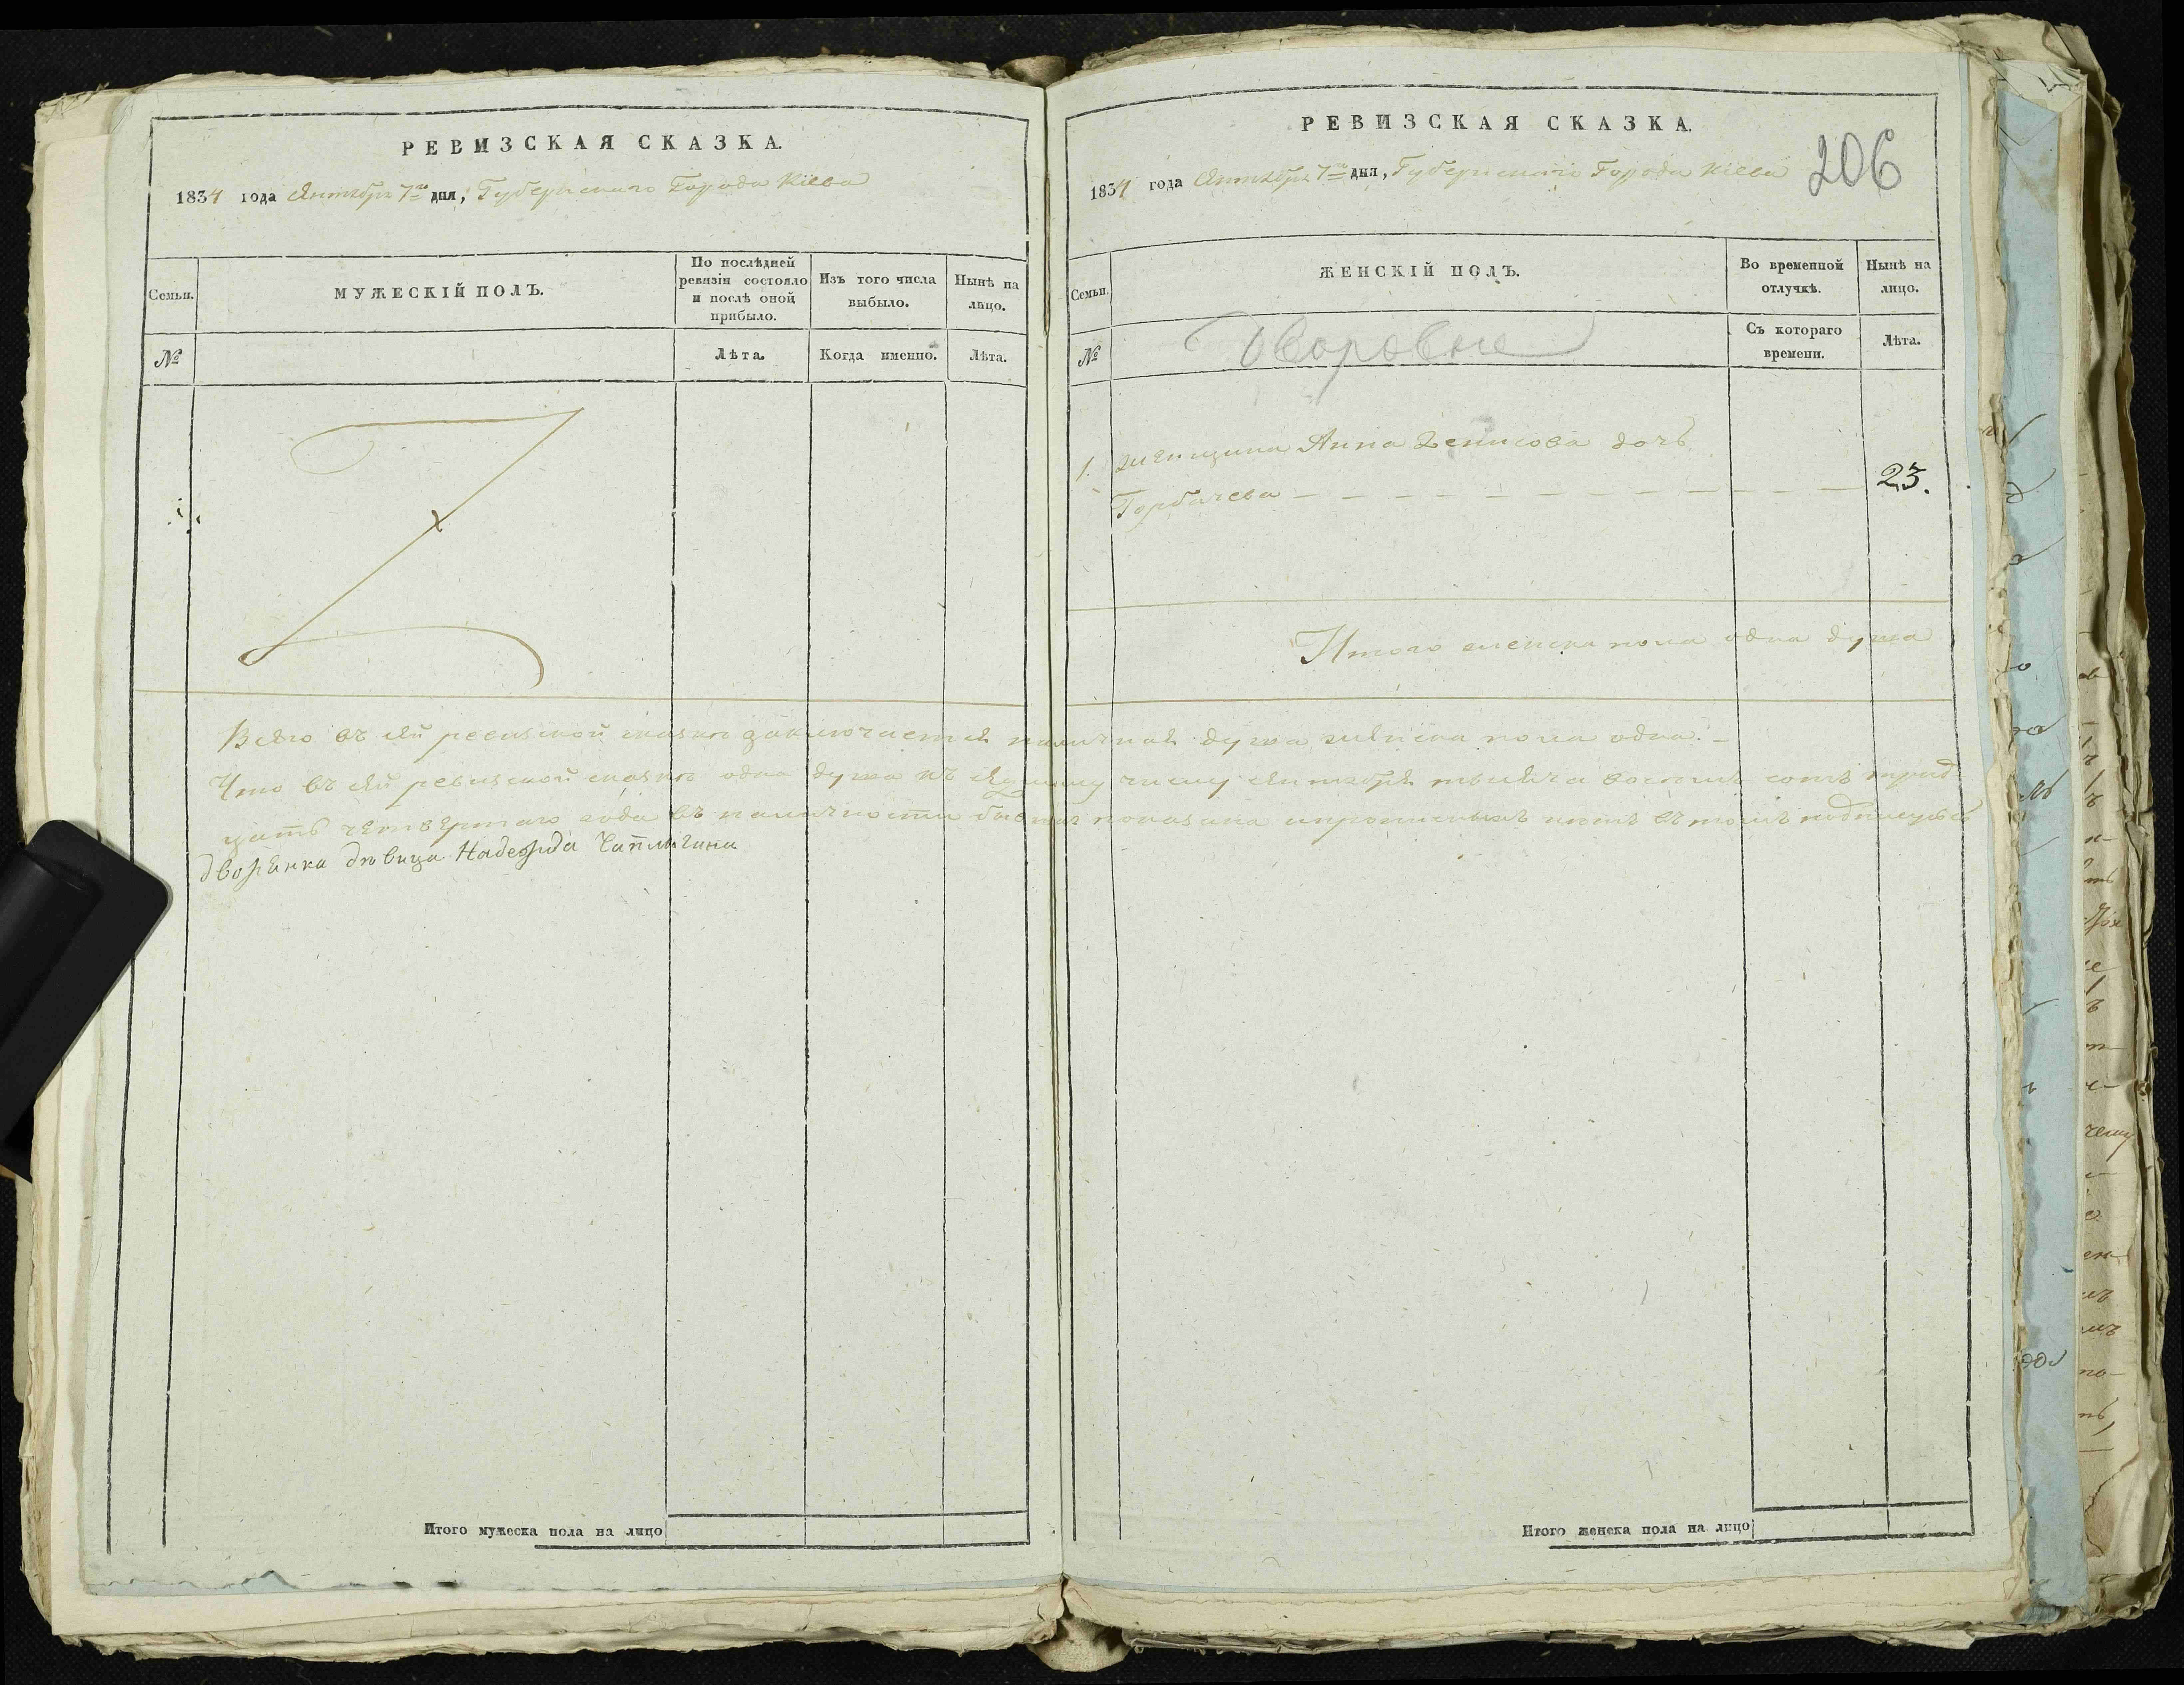 РЕВИЗСКАЯ СКАЗКА.
1834 года Октября 7го дня, Губернскаго Города Кіева
Семьи.
МУЖЕСКІЙ ПОЛЪ.
По послѣдней ревизіи состояло и послѣ оной прибыло.
Изъ того числа выбыло.
Нынѣ на лицо.
№
Лѣта.
Когда именно.
Лѣта.
Всего въ сей ревизской сказкѣ заключается наличная душа женска пола одна. –
Что въ сей ревизской сказкѣ одна душа къ седьмому числу октября тысяча восемь сотъ трид
цать четвертаго года въ наличности бывшая показана и прописныхъ нѣтъ въ томъ подписуюсь
дворянка дѣвица Надежда Чаплыгина
Итого мужеска пола на лицо
РЕВИЗСКАЯ СКАЗКА.
206
1834 года Октября 7го дня, Губернскаго Города Кіева
Семьи.
ЖЕНСКІЙ ПОЛЪ.
Во временной отлучкѣ.
Нынѣ на лицо.
№
Дворовые
Съ котораго времени.
Лѣта.
1. женщина Анна Денисова дочь
Горбачева – – – – – – – – – – – 23.
Итого женска пола одна душа
Итого женска пола на лицо